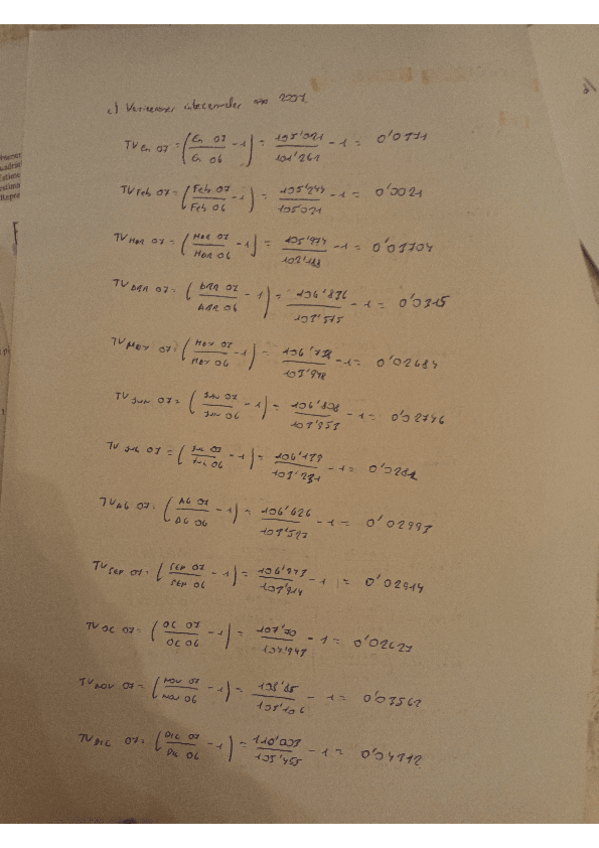 c) Variaciones interanuales año 2007
TV En 07 = (En 07 / En 06 - 1) = 105'021 / 101'261 - 1 = 0'0371
TV Feb 07 = (Feb 07 / Feb 06 - 1) = 105'249 / 105021 - 1 = 0'0021
TV MAR 07 = (MAR 07 / MAR 06 - 1) = 105'974 / 102'188 - 1 = 0'03704
TV ABR 07 = (ABR 07 / ABR 06 - 1) = 106'876 / 103'515 - 1 = 0'0315
TV MAY 07 = (MAY 07 / MAY 06 - 1) = 106'778 / 103'948 - 1 = 0'02684
TV JUN 07 = (JUN 07 / JUN 06 - 1) = 106'808 / 103'953 - 1 = 0'02746
TV JUL 07 = (JUL 07 / JUL 06 - 1) = 106'179 / 103'231 - 1 =
TV AG 07 = (AG 07 / AG 06 - 1) = 106'626 / 103'527 - 1 = 0'02993
TV SEP 07 = (SEP 07 / SEP 06 - 1) = 106'973 / 103'914 - 1 = 0'02914
TV OC 07 = (OC 07 / OC 06 - 1) = - 1 = 0'02627
TV NOV 07 = (NOV 07 / NOV 06 - 1) = / 105'106 - 1 = 0'03562
TV DIC 07 = (DIC 07 / DIC 06 - 1) = / 105'455 - 1 =